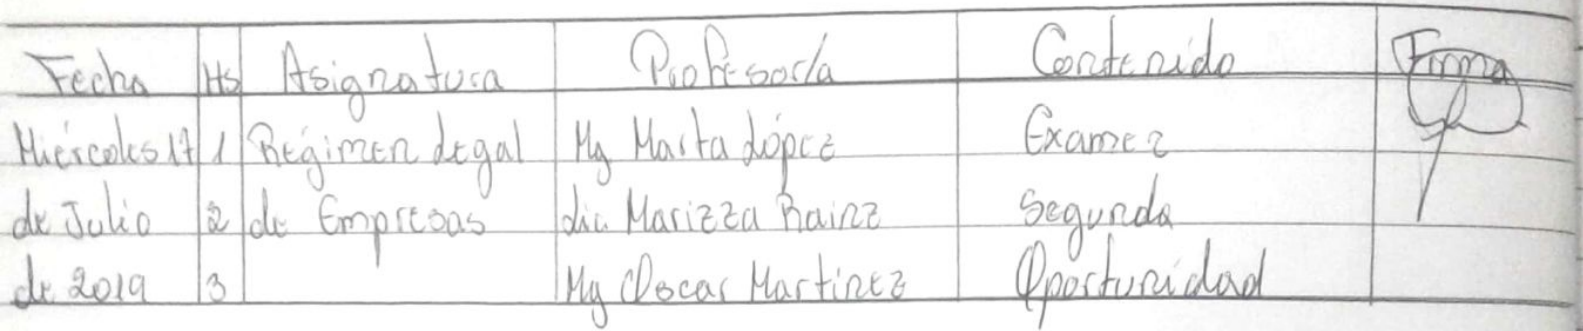 Fecha Hs Asignatura Profesor/a Contenido Firma
Miércoles 17 1 Régimen Legal Mg Marta López Examen
de Julio 2 de Empresas Lic. Marizza Rainz Segunda
de 2019 3 Mg Oscar Martinez Oportunidad